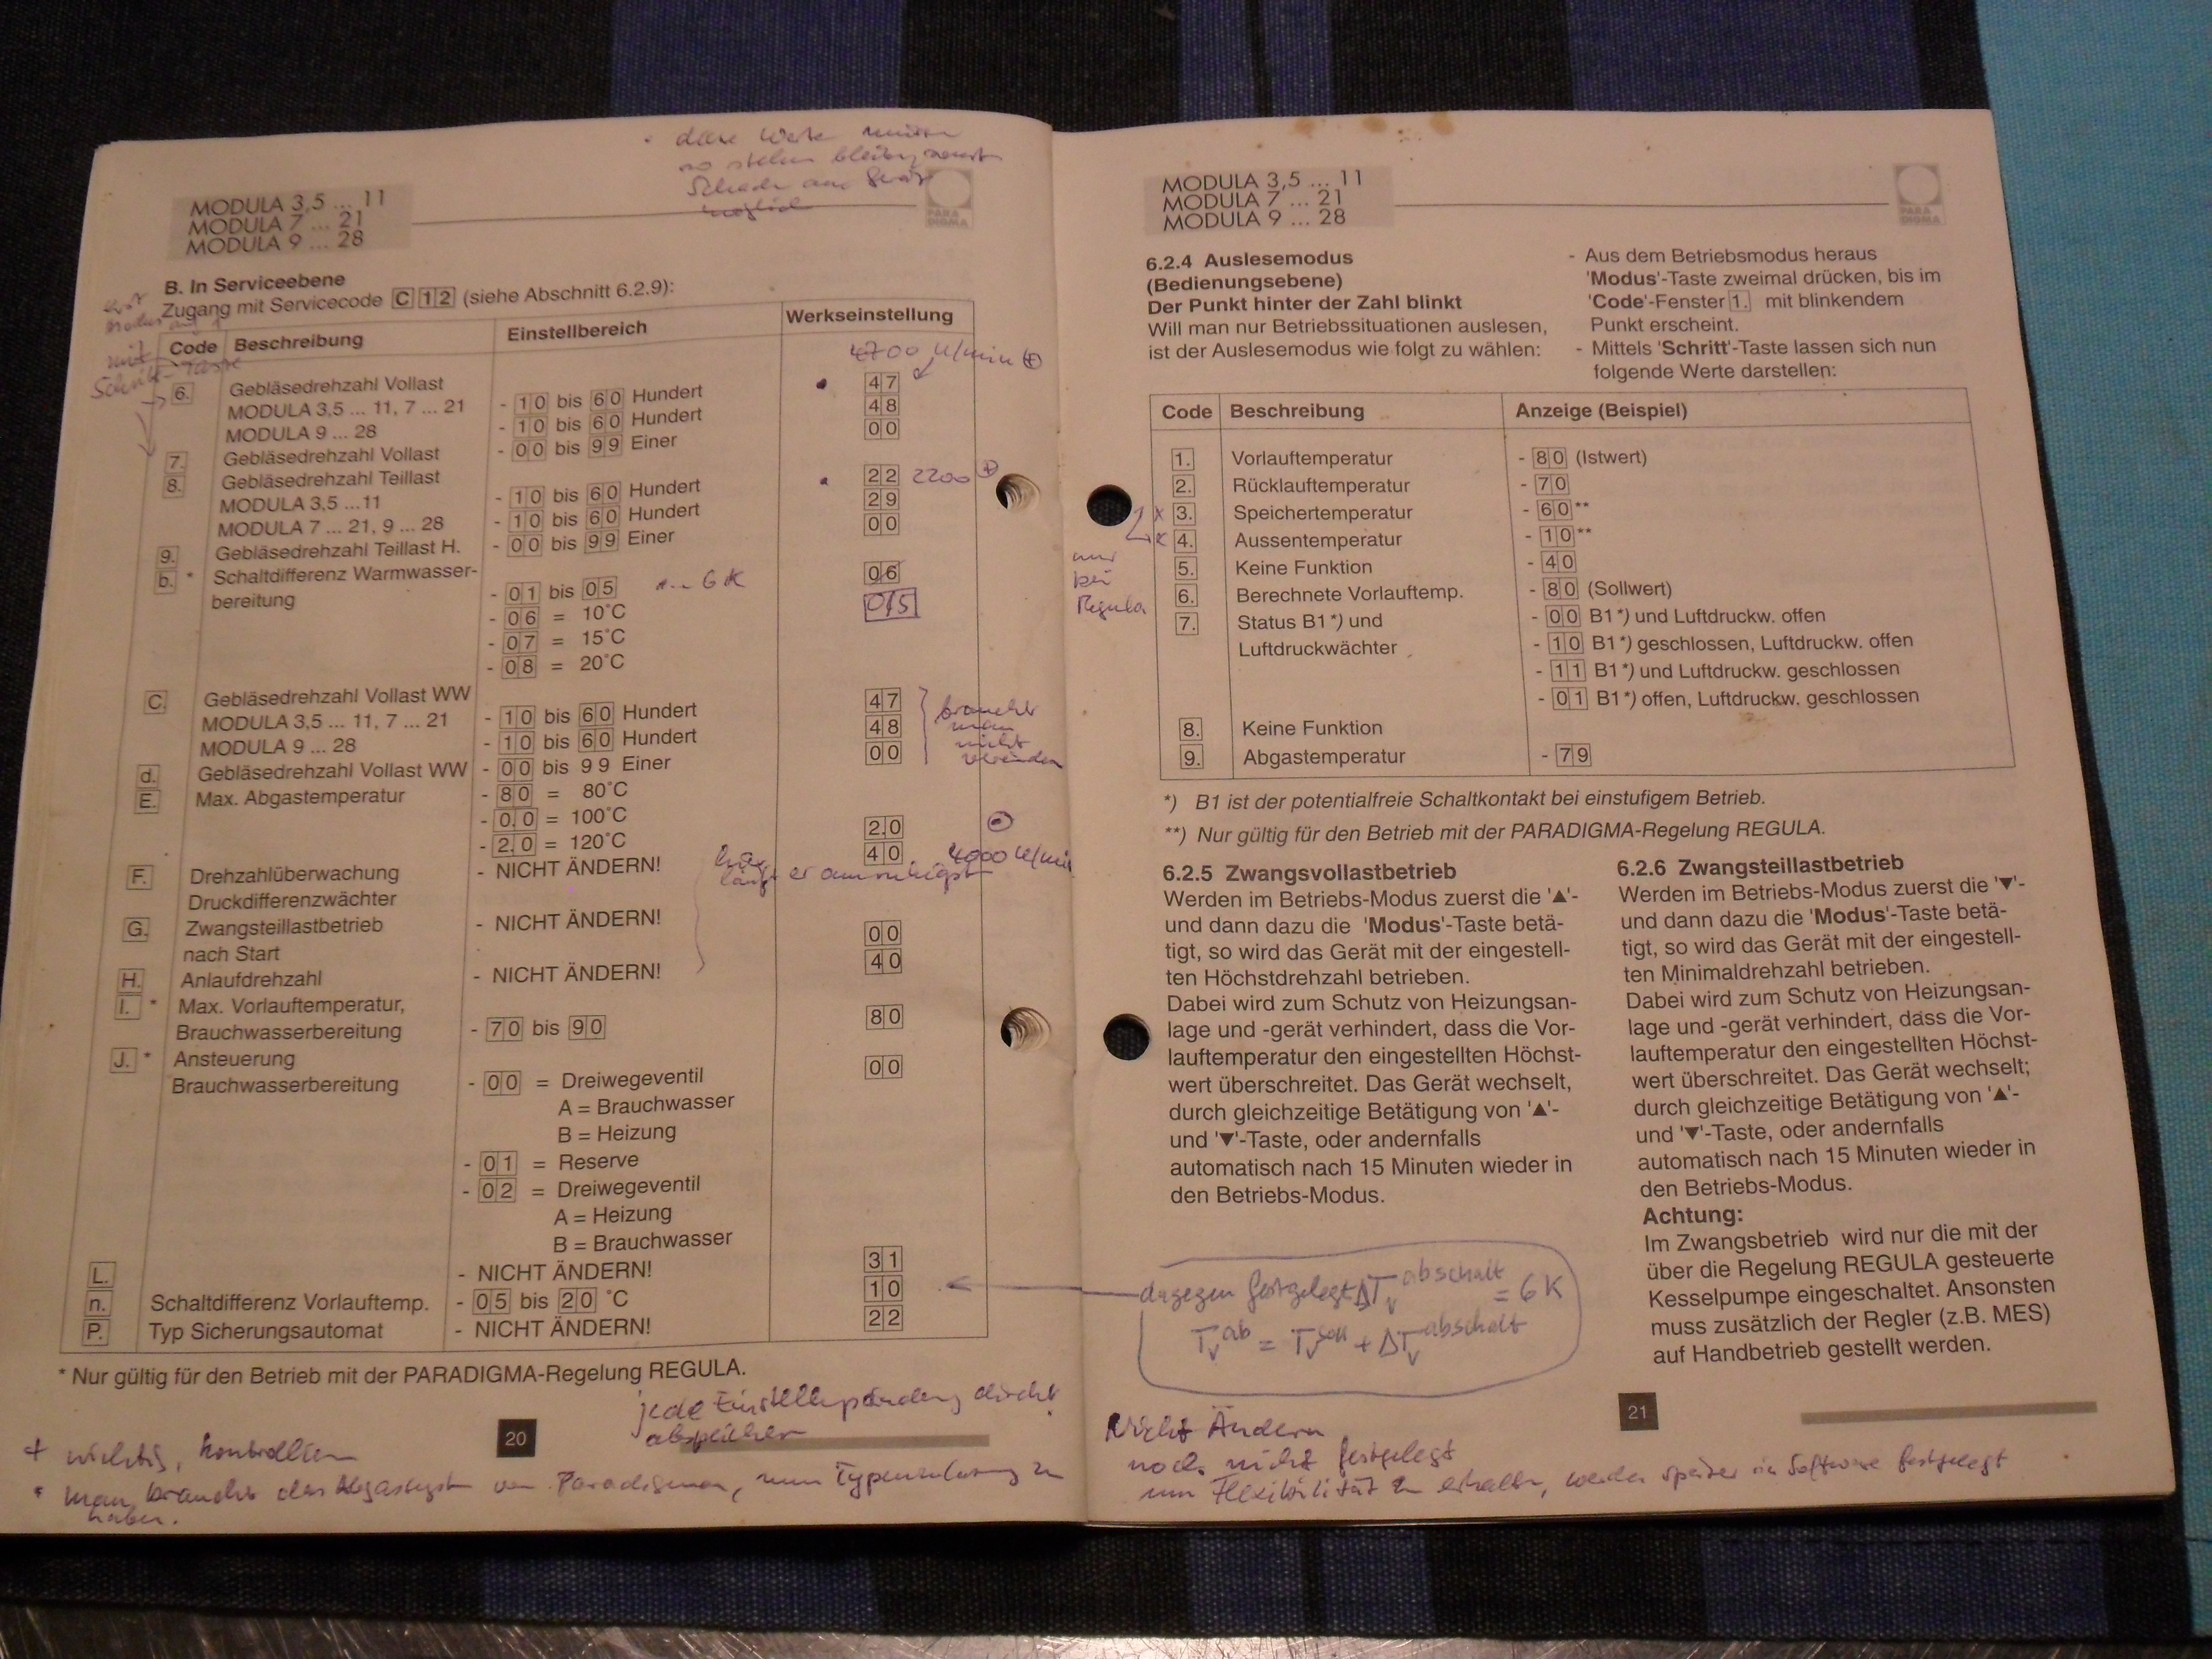 MODULA 3,5 ... 11
MODULA 7 ... 21
MODULA 9 ... 28
PARA
DIGMA
so stehen bleiben, sonst
B. In Serviceebene
Zugang mit Servicecode C 1 2 (siehe Abschnitt 6.2.9):
Code Beschreibung Einstellbereich Werkseinstellung
4700 U/min +
6. Gebläsedrehzahl Vollast
MODULA 3,5 ... 11, 7 ... 21 - 1 0 bis 6 0 Hundert 4 7
MODULA 9 ... 28 - 1 0 bis 6 0 Hundert 4 8
7. Gebläsedrehzahl Vollast - 0 0 bis 9 9 Einer 0 0
8. Gebläsedrehzahl Teillast
MODULA 3,5 ...11 - 1 0 bis 6 0 Hundert 2 2 2200 +
MODULA 7 ... 21, 9 ... 28 - 1 0 bis 6 0 Hundert 2 9
9. Gebläsedrehzahl Teillast H. - 0 0 bis 9 9 Einer 0 0
b. * Schaltdifferenz Warmwasser-
bereitung - 0 1 bis 0 5 ... 6 K 0 6
- 0 6 = 10°C 0 5
- 0 7 = 15°C
- 0 8 = 20°C
C. Gebläsedrehzahl Vollast WW
MODULA 3,5 ... 11, 7 ... 21 - 1 0 bis 6 0 Hundert 4 7
MODULA 9 ... 28 - 1 0 bis 6 0 Hundert 4 8
d. Gebläsedrehzahl Vollast WW - 0 0 bis 9 9 Einer 0 0
braucht
man
nicht
verändern
E. Max. Abgastemperatur - 8 0 = 80°C
- 0.0 = 100°C
- 2.0 = 120°C 2.0
F. Drehzahlüberwachung - NICHT ÄNDERN! 4 0 4000 U/min
Druckdifferenzwächter
G. Zwangsteillastbetrieb - NICHT ÄNDERN! 0 0
nach Start
H. Anlaufdrehzahl - NICHT ÄNDERN! 4 0
I. * Max. Vorlauftemperatur,
Brauchwasserbereitung - 7 0 bis 9 0 8 0
J. * Ansteuerung
Brauchwasserbereitung - 0 0 = Dreiwegeventil 0 0
A = Brauchwasser
B = Heizung
- 0 1 = Reserve
- 0 2 = Dreiwegeventil
A = Heizung
B = Brauchwasser
L. - NICHT ÄNDERN! 3 1
n. Schaltdifferenz Vorlauftemp. - 0 5 bis 2 0 °C 1 0
P. Typ Sicherungsautomat - NICHT ÄNDERN! 2 2
* Nur gültig für den Betrieb mit der PARADIGMA-Regelung REGULA.
jede Einstelländerung direkt
abspeichern
20
+ wichtig, kontrollieren
man braucht das Abgassystem von Paradigma, um Typenzulassung zu
haben.
MODULA 3,5 ... 11
MODULA 7 ... 21
MODULA 9 ... 28
PARA
DIGMA
6.2.4 Auslesemodus
(Bedienungsebene)
Der Punkt hinter der Zahl blinkt
Will man nur Betriebssituationen auslesen,
ist der Auslesemodus wie folgt zu wählen:
- Aus dem Betriebsmodus heraus
'Modus'-Taste zweimal drücken, bis im
'Code'-Fenster 1. mit blinkendem
Punkt erscheint.
- Mittels 'Schritt'-Taste lassen sich nun
folgende Werte darstellen:
Code Beschreibung Anzeige (Beispiel)
1. Vorlauftemperatur - 8 0 (Istwert)
2. Rücklauftemperatur - 7 0
3. Speichertemperatur - 6 0 **
4. Aussentemperatur - 1 0 **
nur
bei
Regula
5. Keine Funktion - 4 0
6. Berechnete Vorlauftemp. - 8 0 (Sollwert)
7. Status B1*) und - 0 0 B1*) und Luftdruckw. offen
Luftdruckwächter - 1 0 B1*) geschlossen, Luftdruckw. offen
- 1 1 B1*) und Luftdruckw. geschlossen
- 0 1 B1*) offen, Luftdruckw. geschlossen
8. Keine Funktion
9. Abgastemperatur - 7 9
*) B1 ist der potentialfreie Schaltkontakt bei einstufigem Betrieb.
**) Nur gültig für den Betrieb mit der PARADIGMA-Regelung REGULA.
6.2.5 Zwangsvollastbetrieb
Werden im Betriebs-Modus zuerst die '▲'-
und dann dazu die 'Modus'-Taste betä-
tigt, so wird das Gerät mit der eingestell-
ten Höchstdrehzahl betrieben.
Dabei wird zum Schutz von Heizungsan-
lage und -gerät verhindert, dass die Vor-
lauftemperatur den eingestellten Höchst-
wert überschreitet. Das Gerät wechselt,
durch gleichzeitige Betätigung von '▲'-
und '▼'-Taste, oder andernfalls
automatisch nach 15 Minuten wieder in
den Betriebs-Modus.
6.2.6 Zwangsteillastbetrieb
Werden im Betriebs-Modus zuerst die '▼'-
und dann dazu die 'Modus'-Taste betä-
tigt, so wird das Gerät mit der eingestell-
ten Minimaldrehzahl betrieben.
Dabei wird zum Schutz von Heizungsan-
lage und -gerät verhindert, dass die Vor-
lauftemperatur den eingestellten Höchst-
wert überschreitet. Das Gerät wechselt;
durch gleichzeitige Betätigung von '▲'-
und '▼'-Taste, oder andernfalls
automatisch nach 15 Minuten wieder in
den Betriebs-Modus.
Achtung:
Im Zwangsbetrieb wird nur die mit der
über die Regelung REGULA gesteuerte
Kesselpumpe eingeschaltet. Ansonsten
muss zusätzlich der Regler (z.B. MES)
auf Handbetrieb gestellt werden.
dagegen festgelegt ΔTv abschalt = 6 K
Tv ab = Tv soll + ΔTv abschalt
21
Nicht Ändern
noch nicht festgelegt
um Flexibilität zu erhalten, werden später in Software festgelegt